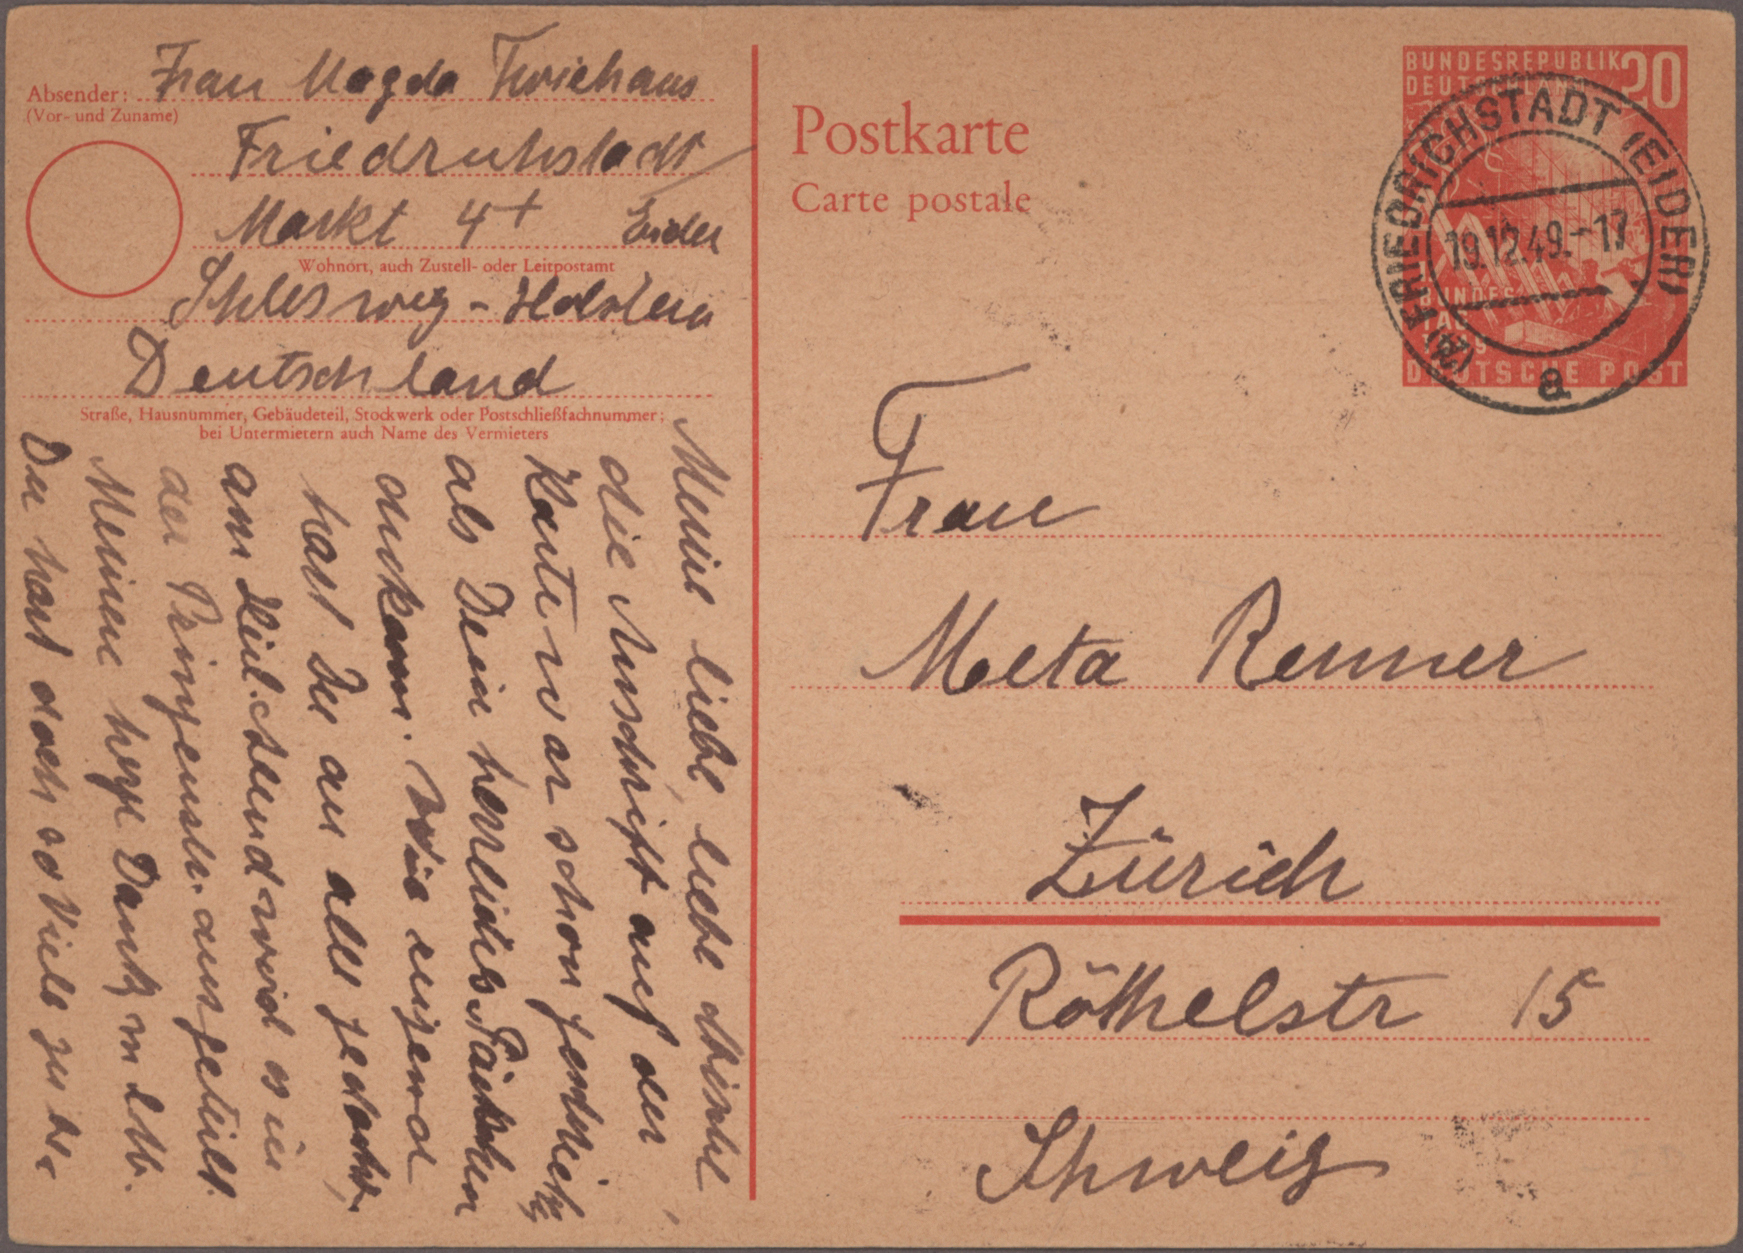 Absender: Frau Magda
(Vor- und Zuname)
Friedrichstadt
Markt 4+ Eider
Wohnort, auch Zustell- oder Leitpostamt
Schleswig-Holstein
Deutschland
Straße, Hausnummer, Gebäudeteil, Stockwerk oder Postschließfachnummer;
bei Untermietern auch Name des Vermieters
Meine liebe, liebe
die Anschrift auf der
Karte war schon
als Dein herrliches Päckchen
ankam. Wie reizend
hast Du an alles gedacht,
am wird es in
der ausgeteilt.
Meinen Dank
Du hast doch so viele zu be-
Postkarte
Carte postale
BUNDESREPUBLIK
DEUTSCHLAND
20
1.
BUNDES
TAG
DEUTSCHE POST
FRIEDRICHSTADT (EIDER)
19.12.49.-17
a
Frau
Meta Renner
Zürich
Röthelstr 15
Schweiz